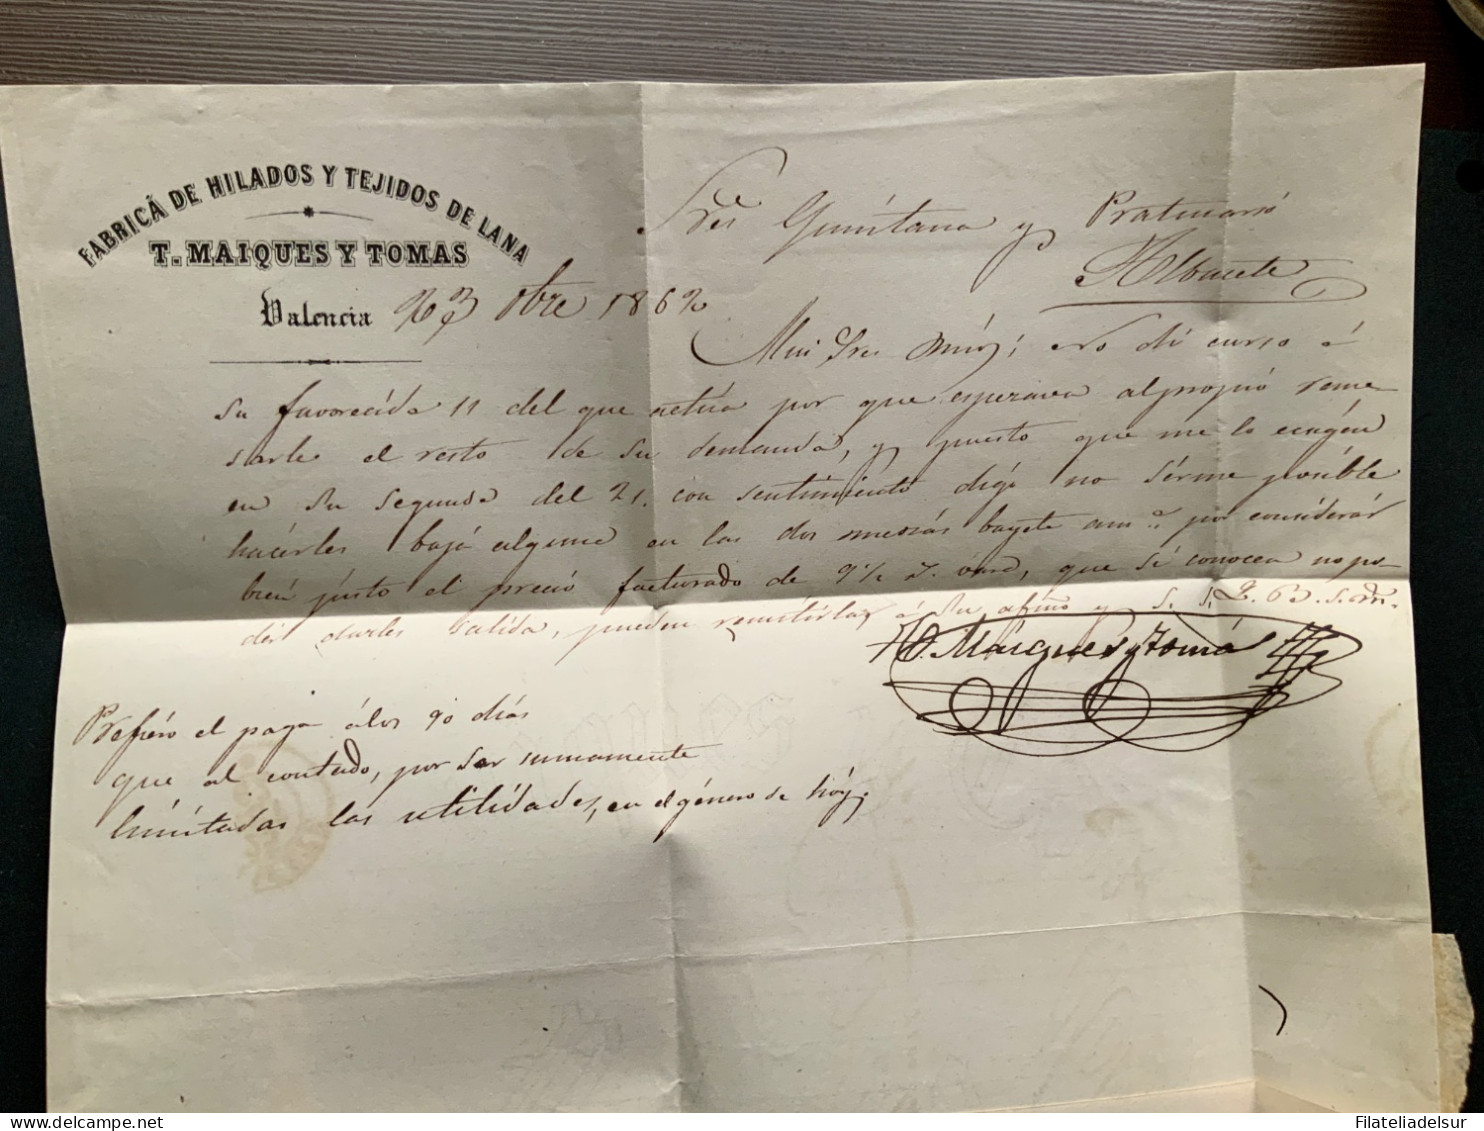 FABRICA DE HILADOS Y TEJIDOS DE LANA
T. MAIQUES Y TOMAS
Valencia 23 9bre 1862
Sres Quintana y Pratmarsó
Albacete
Mui Sres mios; no di curso á
su favorecida 11 del que actúa por que esperava al propio reme
sarle el resto de su demanda, y puesto que me lo ecsigen
en su segunda del 21, con sentimiento digo no sérme posible
hacerles baja alguna en las dos bayeta am.ª por considerar
bien justo el precio facturado de 9½ r. vara, que si conocen no po
der darles salida, pueden remitirlas á su afmo y S. S. Q. B. S. M.
T. Maiques y Tomás
Prefiero el pago á los 90 dias
que al contado, por ser sumamente
limitadas las utilidades, en el género de hoy.
Filateliadelsur